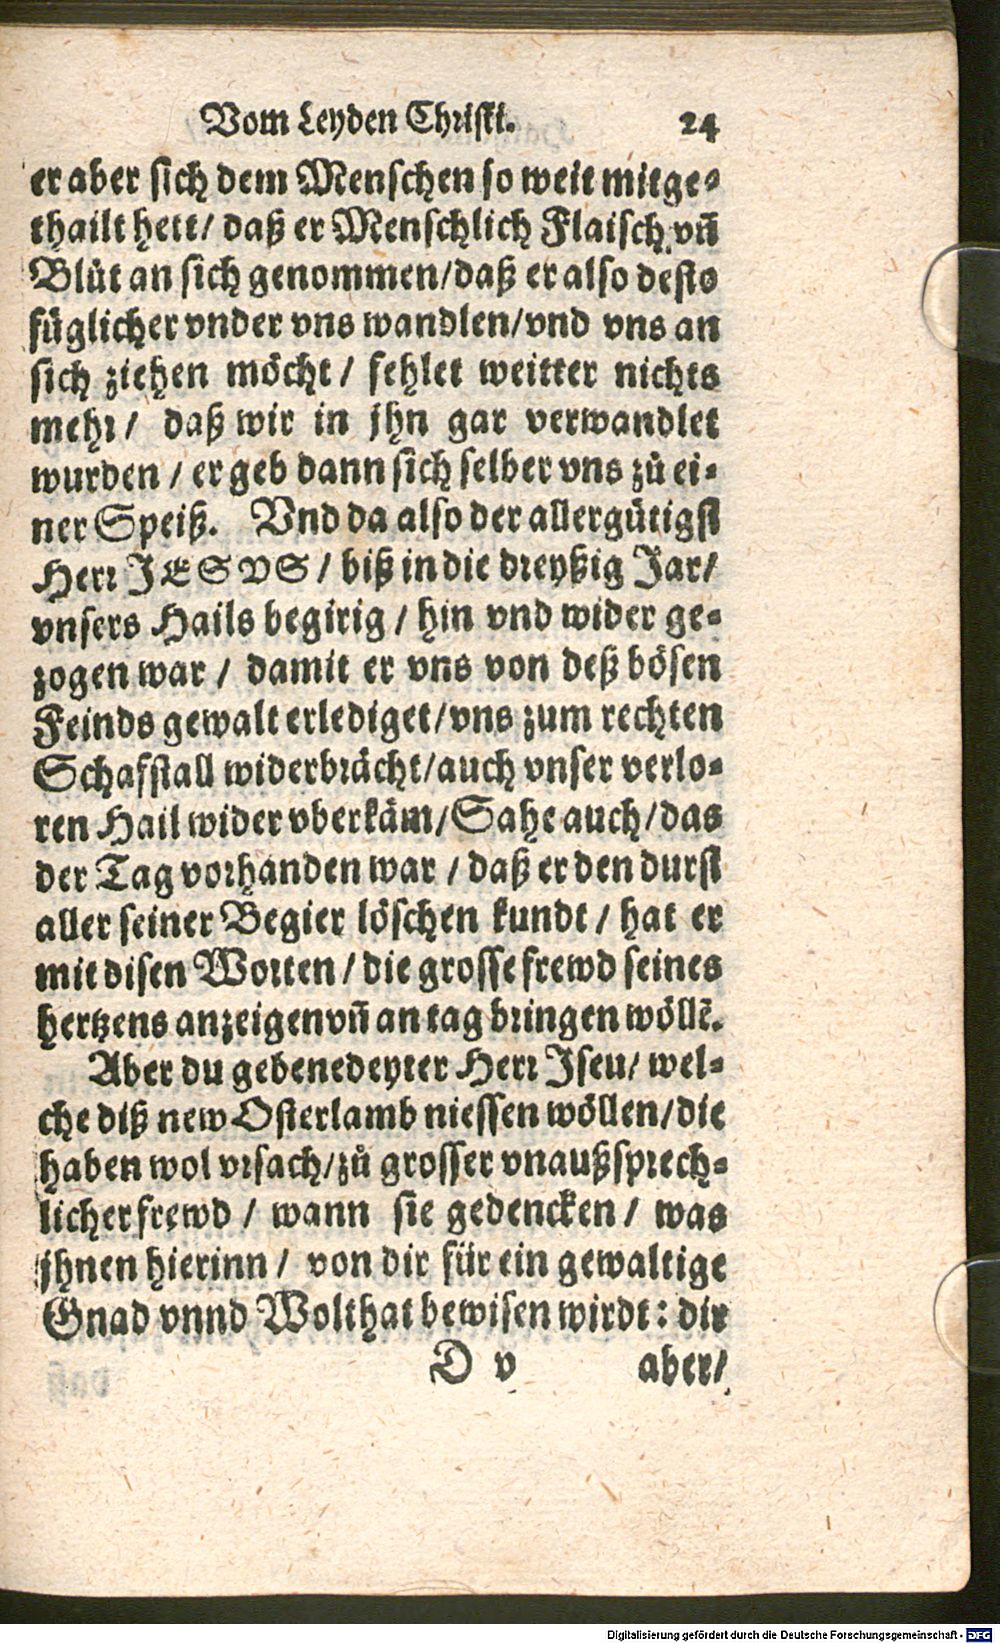 Vom Leyden Christi. 24
er aber sich dem Menschen so weit mitge-
thailt hett/ daß er Menschlich Flaisch vn̄
Blůt an sich genommen/daß er also desto
füglicher vnder vns wandlen/vnd vns an
sich ziehen möcht/ fehlet weitter nichts
mehr/ daß wir in jhn gar verwandlet
wurden / er geb dann sich selber vns zů ei-
ner Speiß. Vnd da also der allergütigst
Herr JESVS / biß in die dreyßig Jar/
vnsers Hails begirig / hin vnd wider ge-
zogen war / damit er vns von deß bösen
Feinds gewalt erlediget/vns zum rechten
Schafstall widerbrächt/auch vnser verlo-
ren Hail wider vberkäm/Sahe auch/das
der Tag vorhanden war / daß er den durst
aller seiner Begier löschen kundt / hat er
mit disen Worten / die grosse frewd seines
hertzens anzeigen vn̄ an tag bringen wöllē.
Aber du gebenedeyter Herr Jseu/ wel-
che diß new Osterlamb niessen wöllen/die
haben wol vrsach/zů grosser vnaußsprech-
licher frewd / wann sie gedencken / was
jhnen hierinn / von dir für ein gewaltige
Gnad vnnd Wolthat bewisen wirdt: dir
D v aber/
Digitalisierung gefördert durch die Deutsche Forschungsgemeinschaft - DFG